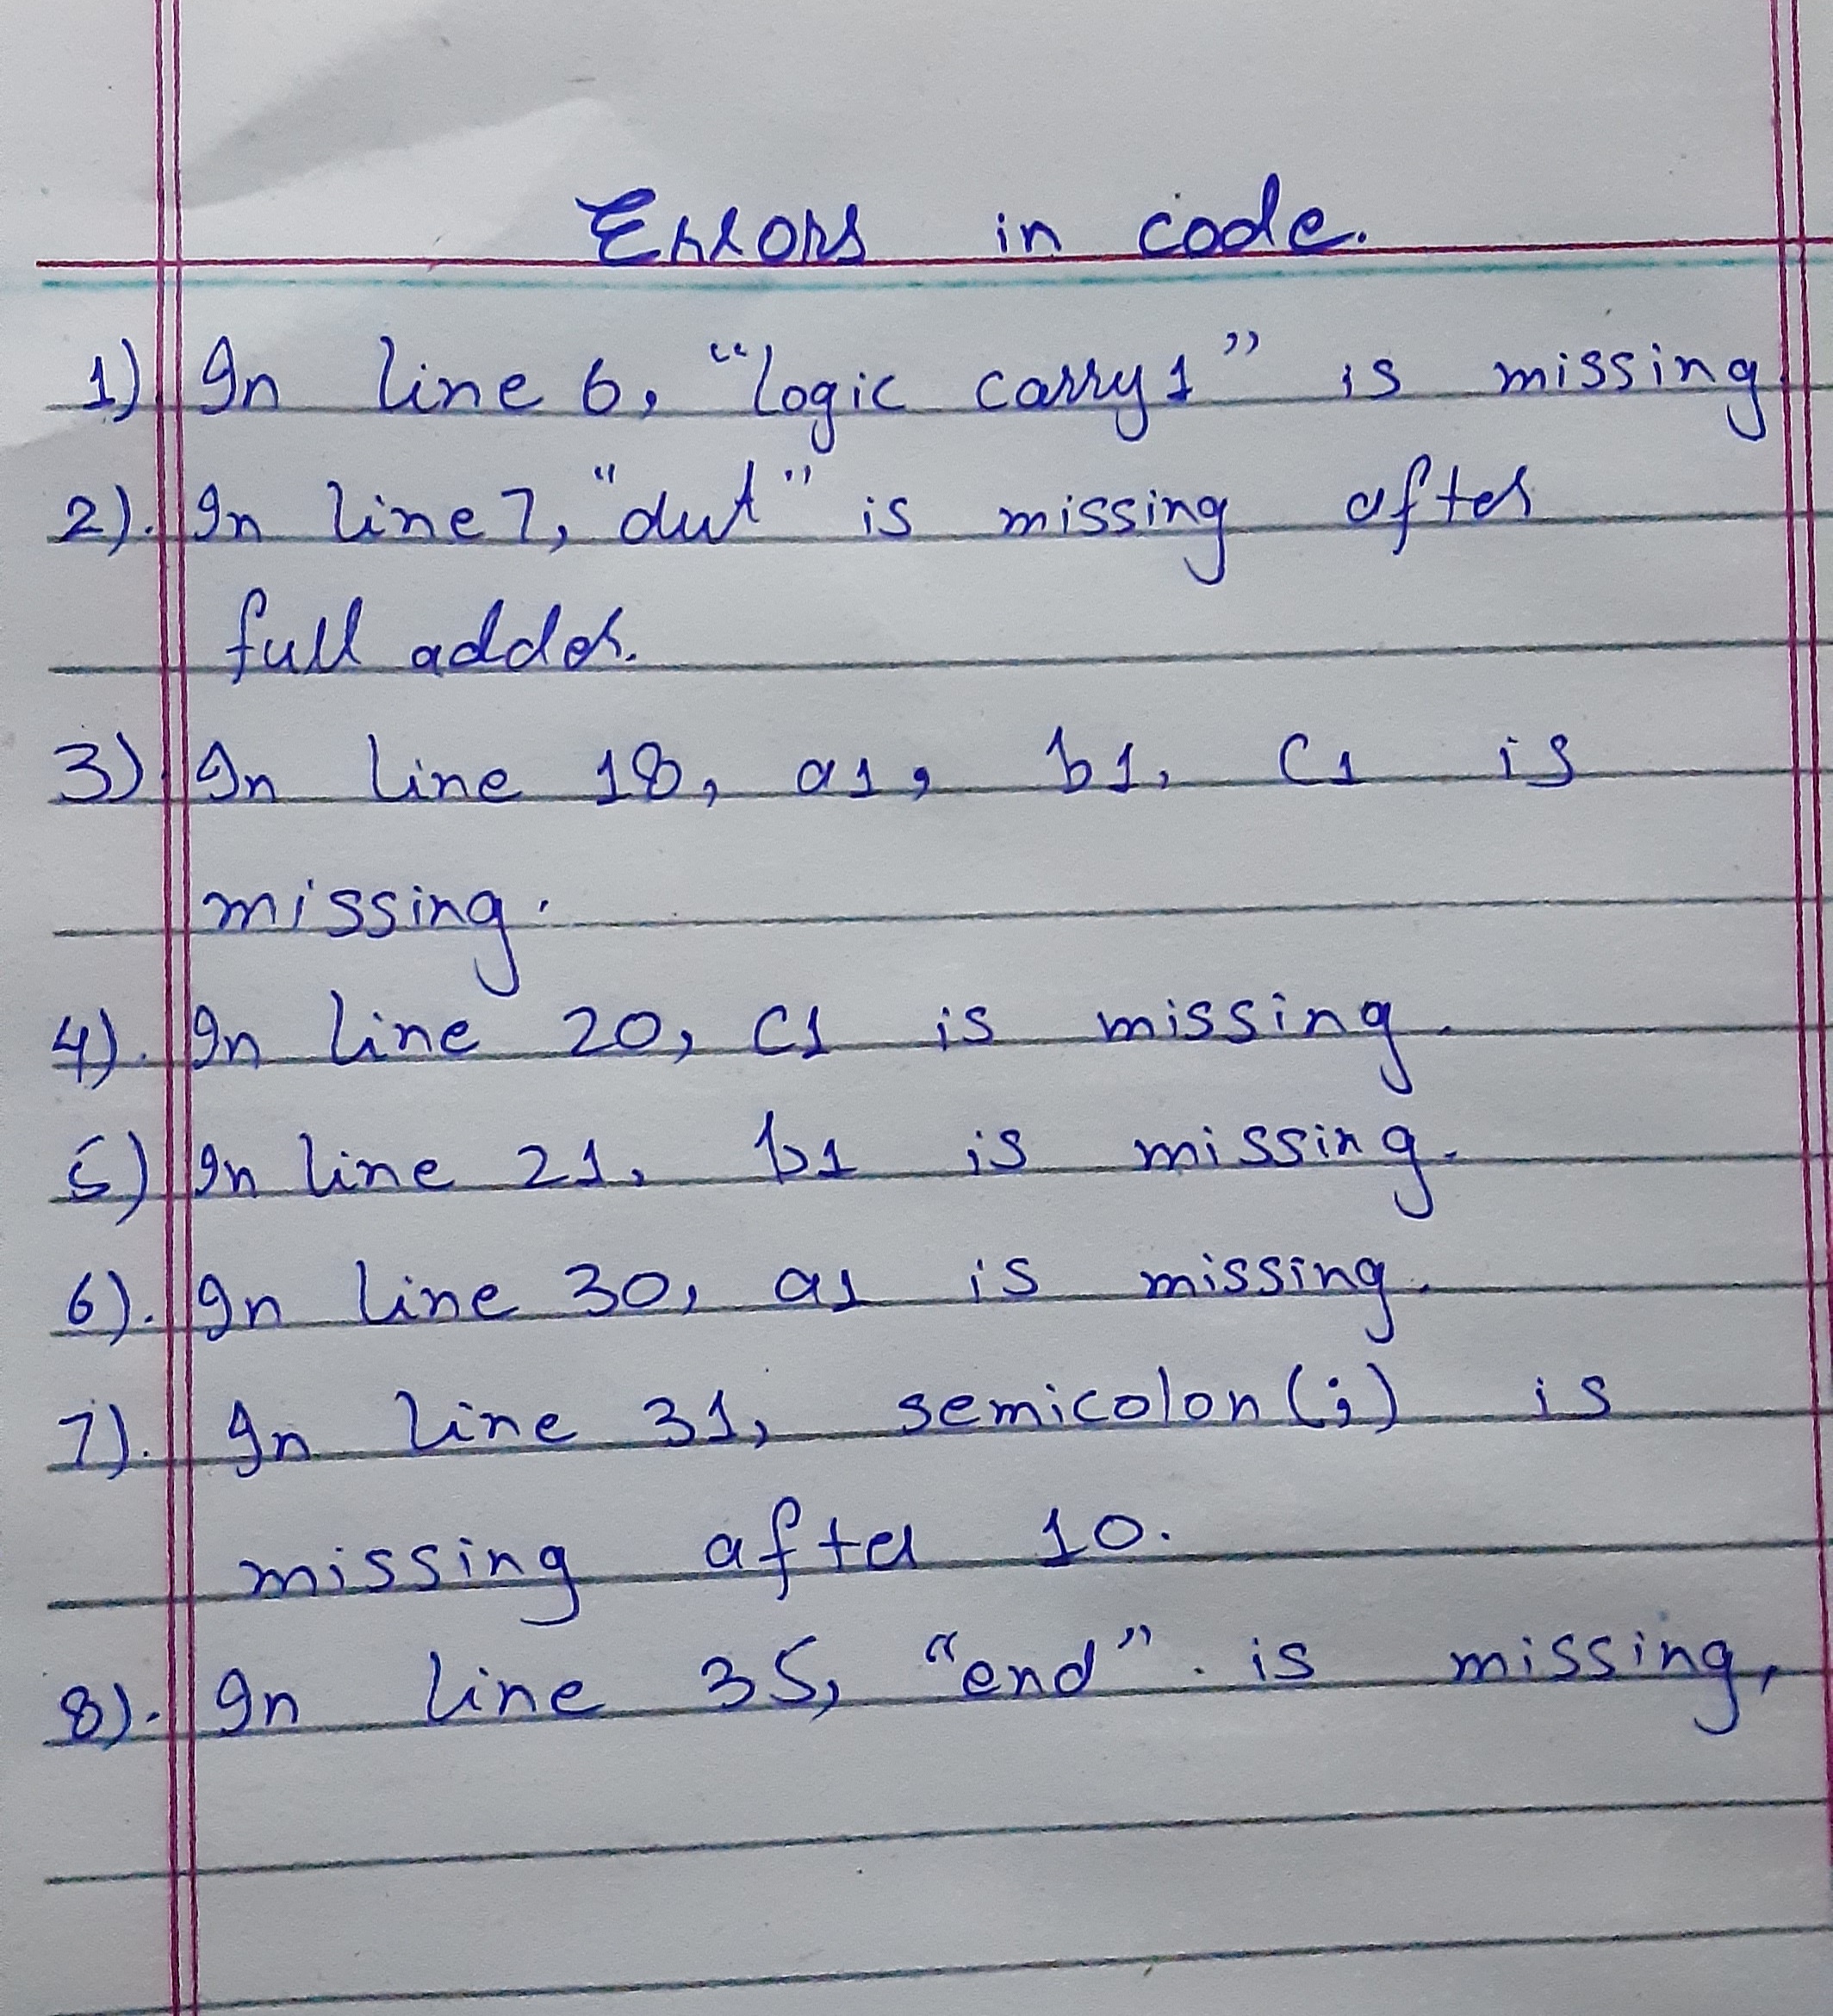 Errors in code.
1) In line 6, "logic carry1" is missing
2). In line 7, "dut" is missing after
full adder.
3) In line 18, a1, b1, c1 is
missing.
4). In line 20, c1 is missing.
5) In line 21, b1 is missing.
6). In line 30, a1 is missing.
7). In line 31, semicolon (;) is
missing after 10.
8). In line 35, "end". is missing,